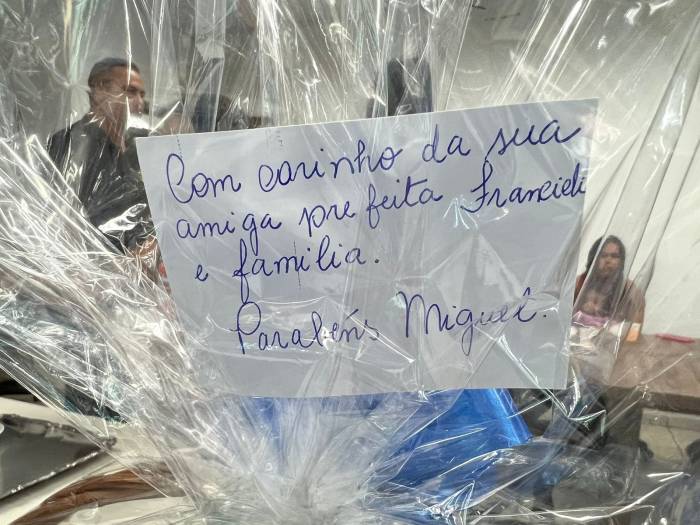 Com carinho da sua
amiga prefeita Francieli
e familia.
Parabéns Miguel.